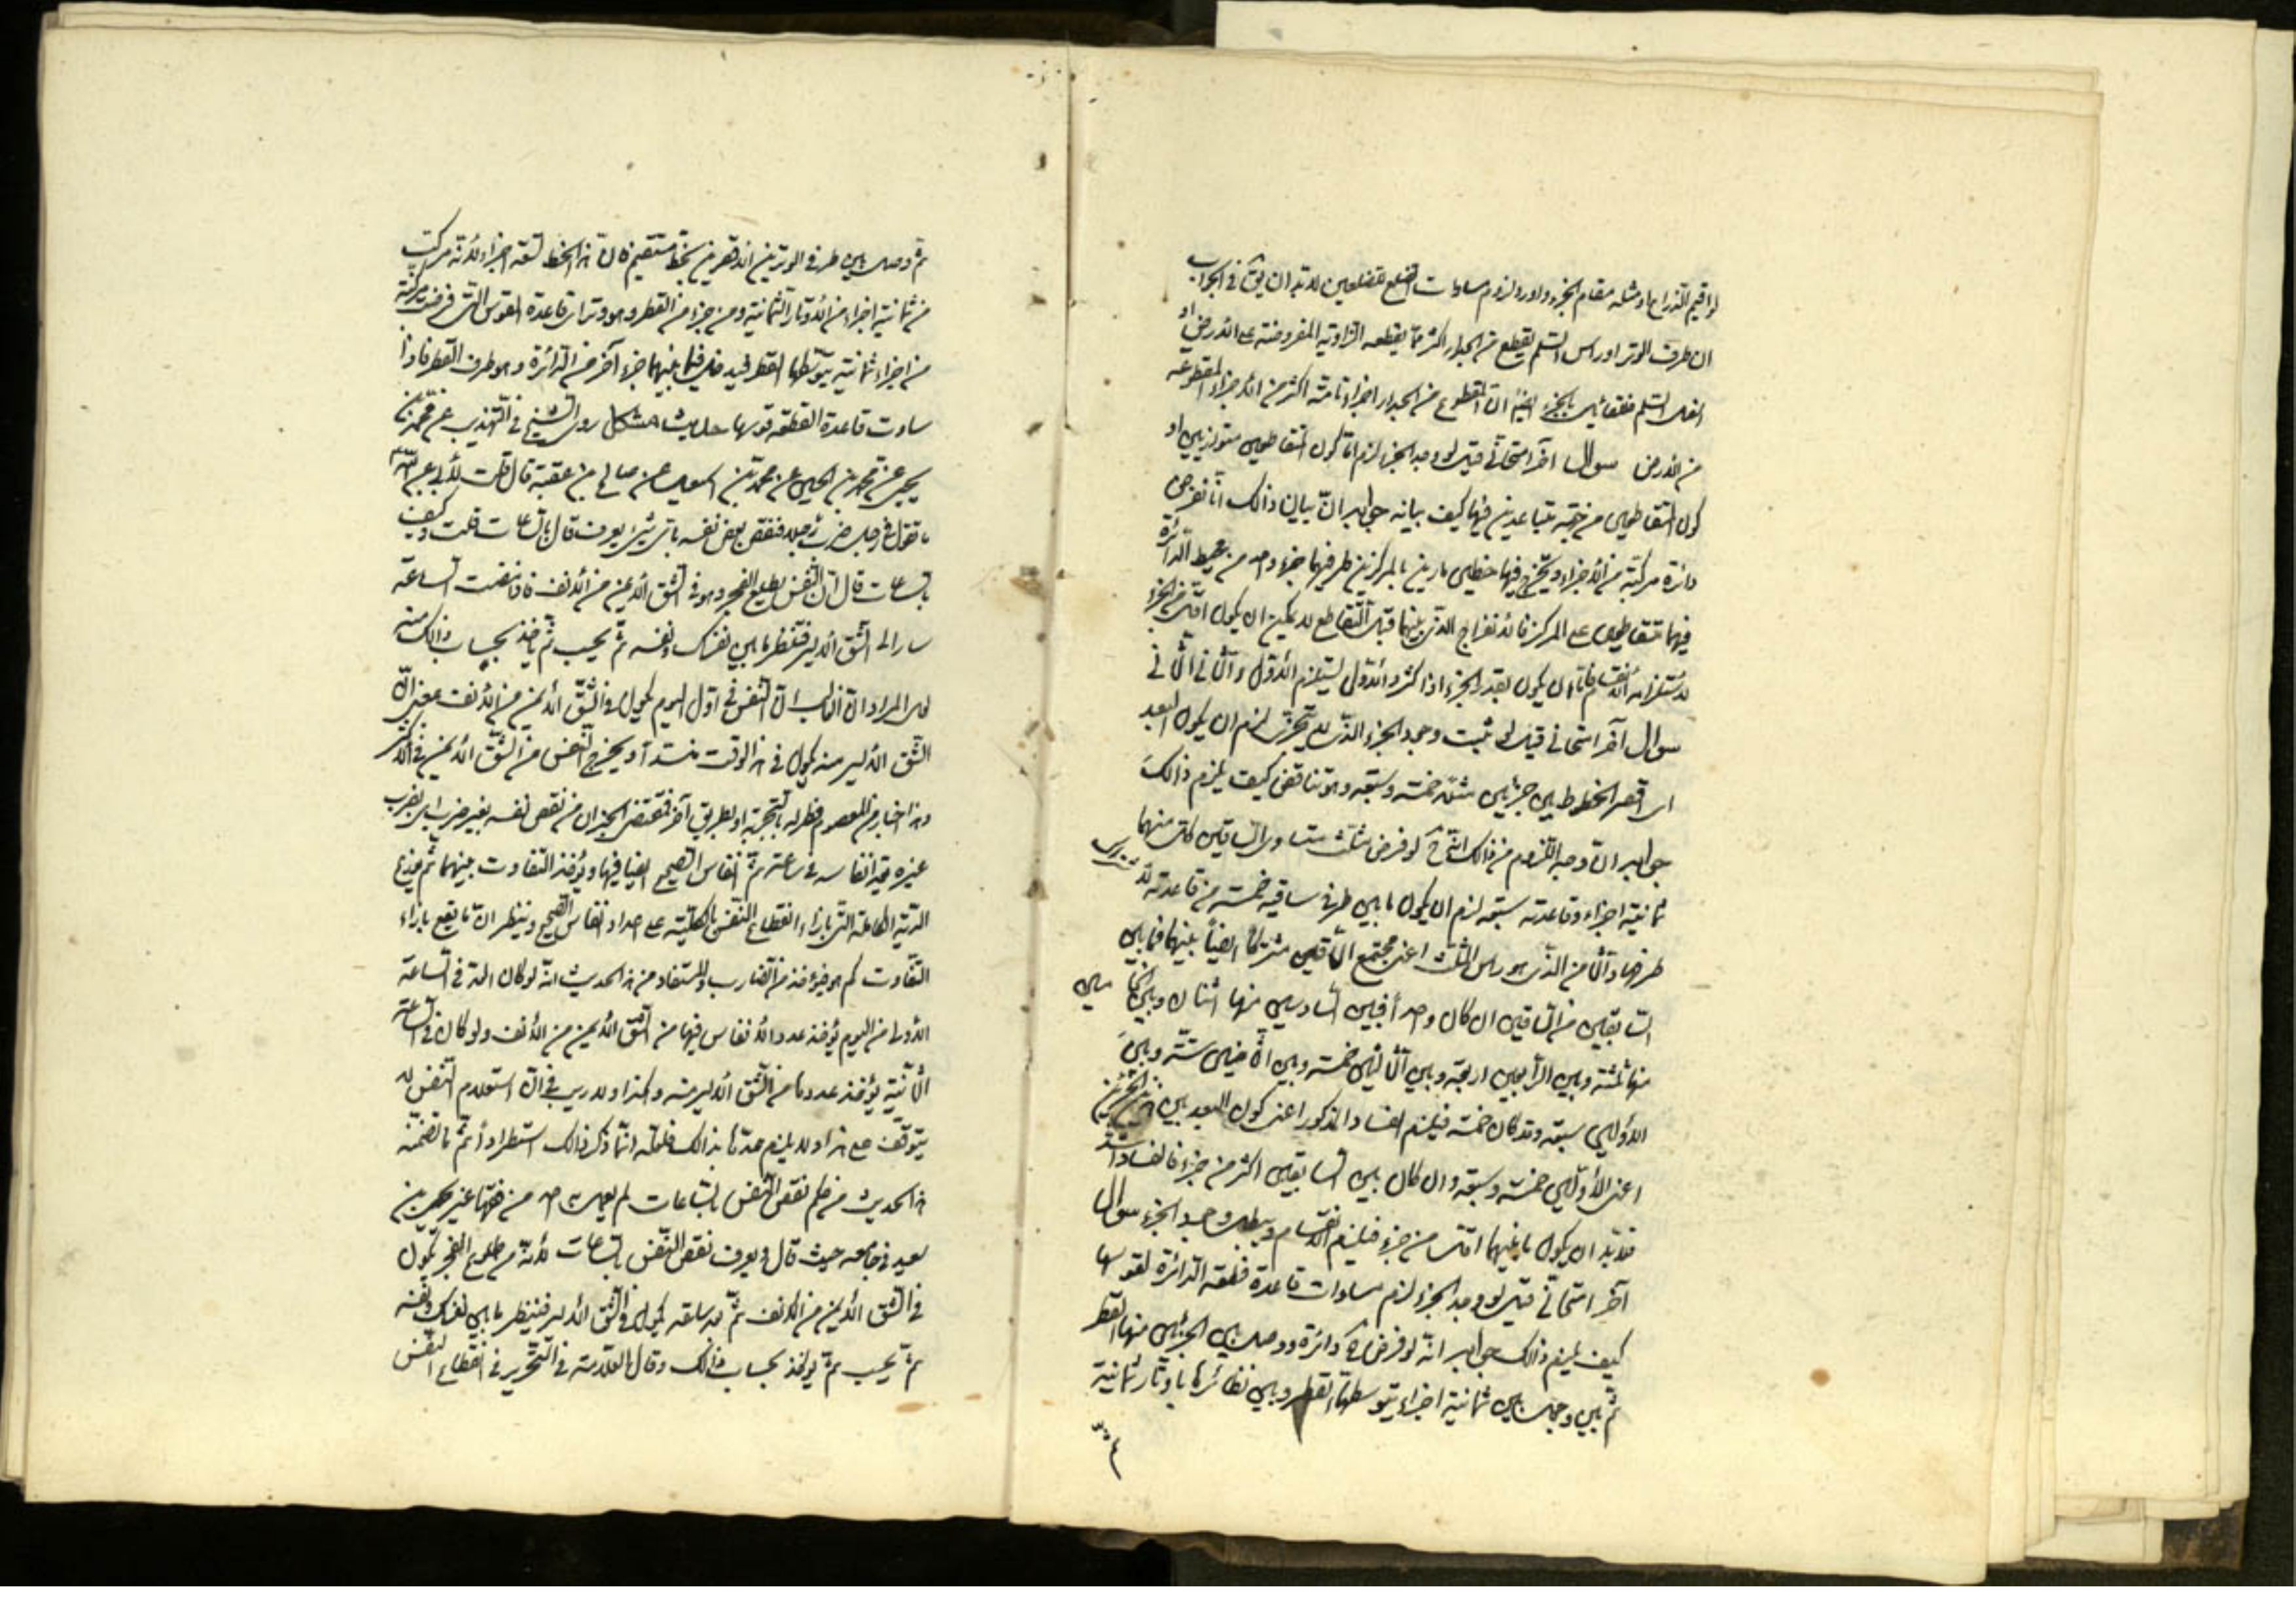 لو اقيم الذراع او مثله مقام الجزء واورد لزوم مساوات الضلع للضلعين لا بد ان يق في الجواب
ان طرف الوتر او راس السلم يقطع من الجدار اكثر مما يقطعه الزاوية المفروضة على الارض او
اسفل السلم فعلى بالجزء ايضا ان المقطوع من الجدار اجزاء تامة اكثر من الاجزاء المقطوعة
من الارض سوال آخر امتحاني قيل لو وجد الجزء لزم اما كون المتقاطعين متوازيين او
كون المتقاطعين من جهة متباعدين فيها كيف بيانه جوابه ان بيان ذالك انا نفرض
دائرة مركبة من الاجزاء ويخرج فيها خطين مارين بالمركز بين طرفيهما جزء واحد من محيط الدائرة
فهما متقاطعين على المركز فالانفراج الذي بينهما قبل التقاطع لا يمكن ان يكون اقل من الجزء
لاستلزامه الانقسام فاما ان يكون بقدر الجزء او اكثر والاول يستلزم الاول والثاني الثاني
سوال آخر امتحاني قيل لو ثبت وجود الجزء الذي لا يتجزى لزم ان يكون البعد
اي اقصر الخطوط بين جزئين مثلا خمسة وسبعة وهو تناقض كيف يلزم ذالك
جوابه ان وجه اللزوم من ذالك انه لو فرض مثلث متساوي الساقين كل منهما
ثمانية اجزاء وقاعدته سبعة لزم ان يكون ما بين طرفي ساقيه خمسة من قاعدته لاشتراك
طرفيها والثامن الذي هو راس المثلث اعني مجتمع الساقين مشترك ايضا بينهما فما بين
السابعين من الساقين ان كان واحدا فبين السادسين منها اثنان وبين الخامسين
منها ثلثة وبين الرابعين اربعة وبين الثالثين خمسة وبين الثانيين ستة وبين
الاولين سبعة وقد كان خمسة فيلزم الفساد المذكور اعني كون البعد بين الجزئين
اعني الاولين خمسة وسبعة وان كان بين السابعين اكثر من جزء فالفساد اشد
فلا بد ان يكون ما بينهما اقل من جزء فيلزم الانقسام ويبطل وجود الجزء سوال
آخر امتحاني قيل لو وجد الجزء لزم مساوات قاعدة قطعة الدائرة لقوسها
كيف يلزم ذالك جوابه انه لو فرض دائرة ووصل بين الجزئين منها القطر
ثم بين وصل بين ثمانية اجزاء يتوسطها القطر وبين نظائرها باوتار ثمانية
ثم وصل بين طرفي الوترين الاقصرين بخط مستقيم كان هذا الخط تسعة اجزاء لانه مركب
من ثمانية اجزاء من الاوتار الثمانية ومن جزء من القطر وهو وتر اي قاعدة لقوس التي فرضت مركبة
من اجزاء ثمانية يتوسطها القطر فيه فما بينهما جزء آخر من الدائرة وهو طرف القطر فاذا
ساوت قاعدة القطعة قوسها حديث مشكل روى الشيخ في التهذيب عن محمد بن
يحيى عن محمد بن الحسين عن محمد بن اسمعيل عن صالح بن عقبة قال قلت لابي عبد الله ع
ما تقول في رجل ضرب رجلا فنقص بعض نفسه باي شئ يعرف قال بالساعات قلت وكيف
بالساعات قال ان النفس يطلع الفجر وهو في الشق الايمن من الانف فاذا مضت الساعة
سار الى الشق الايسر فتنظر ما بين نفسك ونفسه ثم يحسب ثم يؤخذ بحساب ذالك منه
لعل المراد ان الغالب ان النفس في اول اليوم يكون في الشق الايمن من الانف بمعنى ان
الشق الايسر منه يكون في هذا الوقت منسدا ويخرج النفس من الشق الايمن في الاكثر
وهذا اخبار من المعصوم فظهر له بالتجربة او بطريق آخر فمقتضى الخبر ان من نقص نفسه بغير ضرب اي بضرب
غيره يعد انفاسه في ساعة ثم انفاس الصحيح ايضا فيها ويؤخذ التفاوت بينهما ثم يوزع
الدية الكاملة التي بازاء انقطاع النفس بالكلية على اعداد انفاس الصحيح وينظر ان ما يقع بازاء
التفاوت كم هو فيؤخذ من الضارب والمستفاد من هذا الحديث انه لو كان العد في الساعة
الاولى من اليوم يؤخذ عدد الانفاس فيها من الشق الايمن من الانف ولو كان في الساعة
الثانية يؤخذ عددها من الشق الايسر منه وهكذا ولا ريب في ان استعلام النفس لا
يتوقف على هذا ولا يلزم عدها بذالك فلعله انما ذكر ذالك استطرادا ثم ما تضمنه
هذا الحديث من حكم نقص النفس بالساعات لم يعمل به احد من فقهائنا غير يحيى بن
سعيد في جامعه حيث قال ويعرف نقص النفس بالساعات لانه من طلوع الفجر يكون
في الشق الايمن من الانف ثم بعد ساعة يكون في الشق الايسر فينظر ما بين نفسك ونفسه
ثم يحسب ثم يؤخذ بحساب ذالك وقال العلامة في التحرير في انقطاع النفس